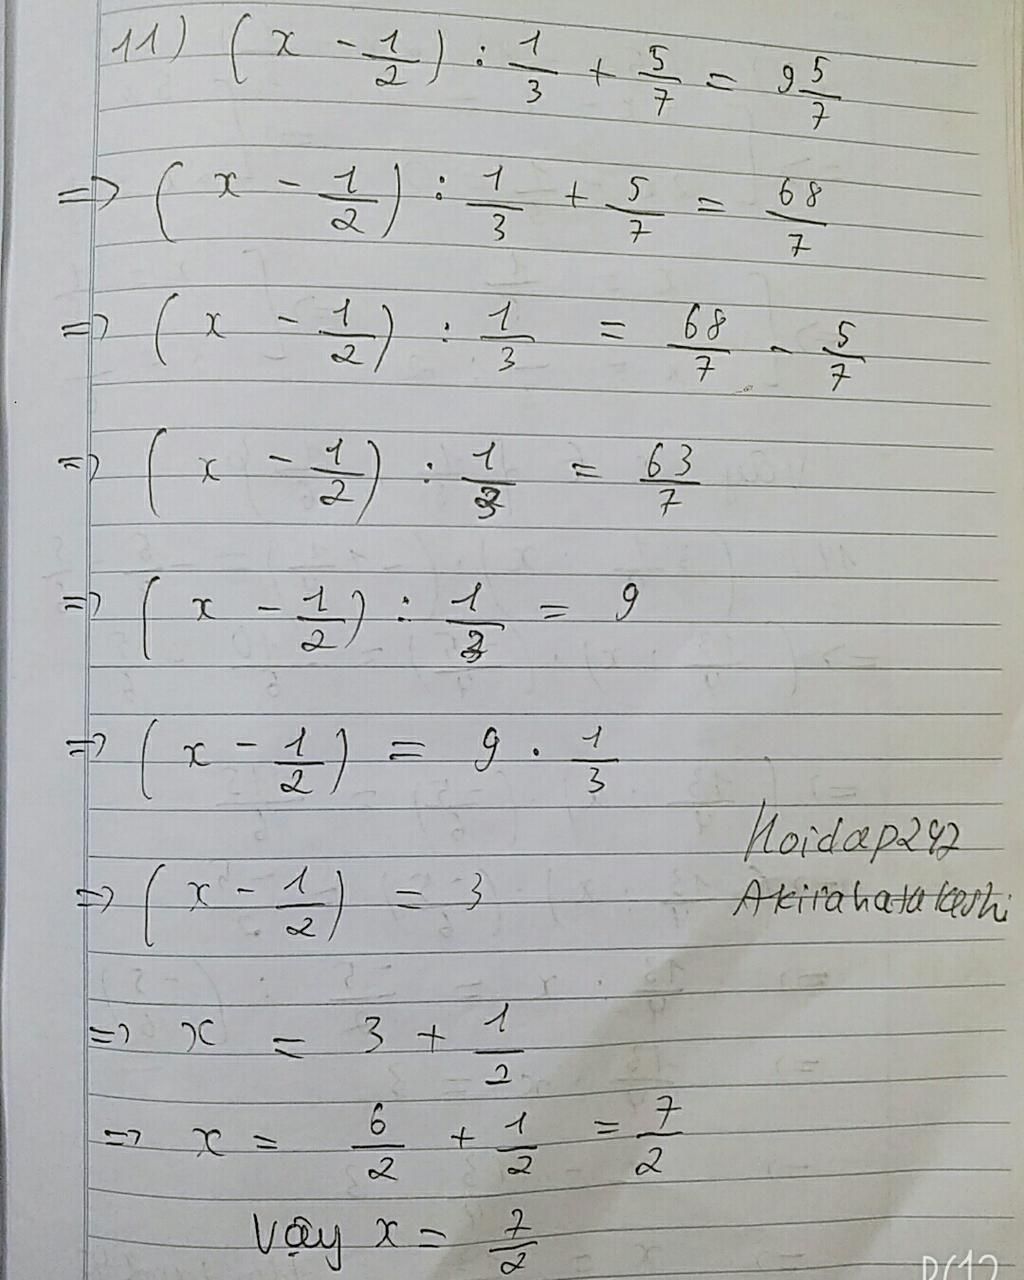 11) (x - 1/2) : 1/3 + 5/7 = 9 5/7
=> (x - 1/2) : 1/3 + 5/7 = 68/7
=> (x - 1/2) : 1/3 = 68/7 - 5/7
=> (x - 1/2) : 1/3 = 63/7
=> (x - 1/2) : 1/3 = 9
=> (x - 1/2) = 9 . 1/3
Hoidap247
=> (x - 1/2) = 3
Akirahatakeshi
=> x = 3 + 1/2
=> x = 6/2 + 1/2 = 7/2
Vậy x = 7/2